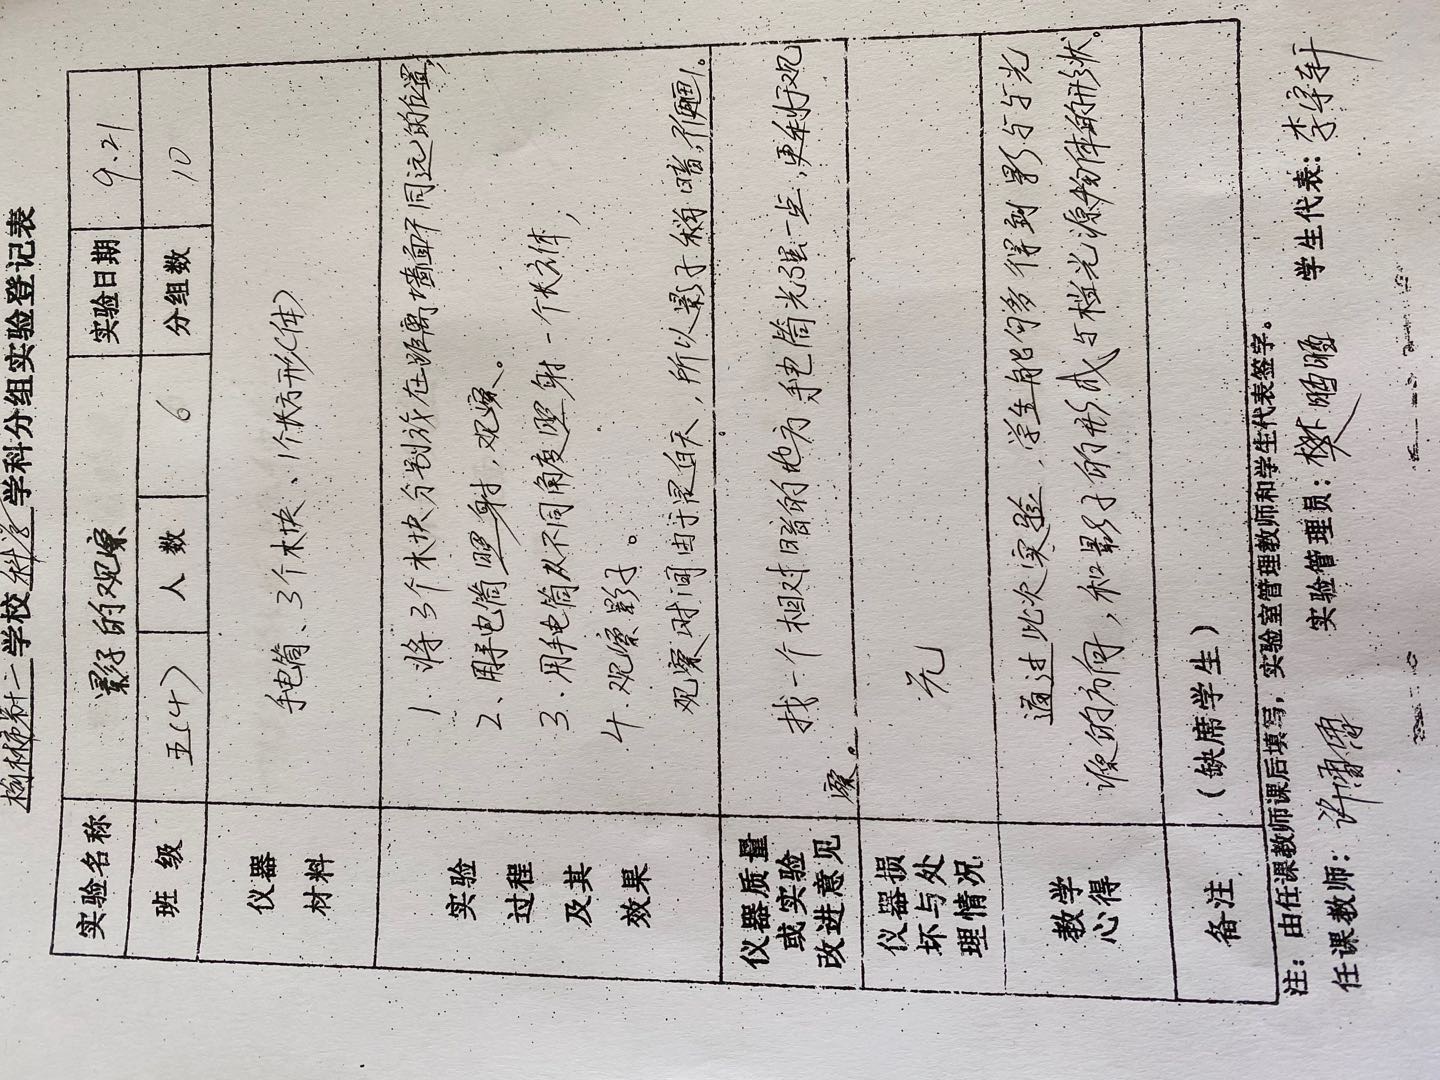 榆林第十二学校科学学科分组实验登记表
实验名称 影子的观察 实验日期 9.21
班 级 五(4) 人 数 6 分组数 10
仪器
材料
手电筒、3个木块、1个长方形(体)
实验
过程
及其
效果
1. 将3个木块分别放在距离墙面不同远的位置,
2、用手电筒照射,观察。
3.用手电筒从不同角度照射一个长方体,
4.观察影子。
观察时间由于是白天,所以影子稍暗,不明显。
仪器质量
或实验
改进意见
找一个相对暗的地方 手电筒光强一点,更利于观
察。
仪器损
坏与处
理情况
无
教学
心得
通过此次实验,学生能够多得到影与与光
源的方向,和影子的形成与档光源物体的形状。
备注
(缺席学生)
注:由任课教师课后填写,实验室管理教师和学生代表签字。
任课教师:许雷雷 实验管理员:樊 学生代表:李宇轩